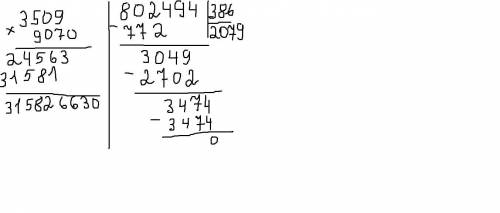 × 3509
9070
24563
31581
315826630
- 802494 386
772 2079
3049
- 2702
3474
- 3474
0